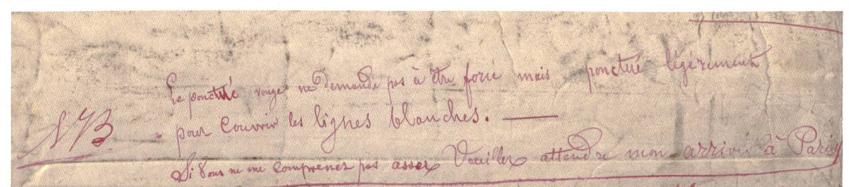 Le ponctué rouge ne demande pas à être foncé mais ponctué légèrement
NB. pour couvrir les lignes blanches. —
Si vous ne me comprenez pas assez Veuillez attendre mon arrivée à Paris